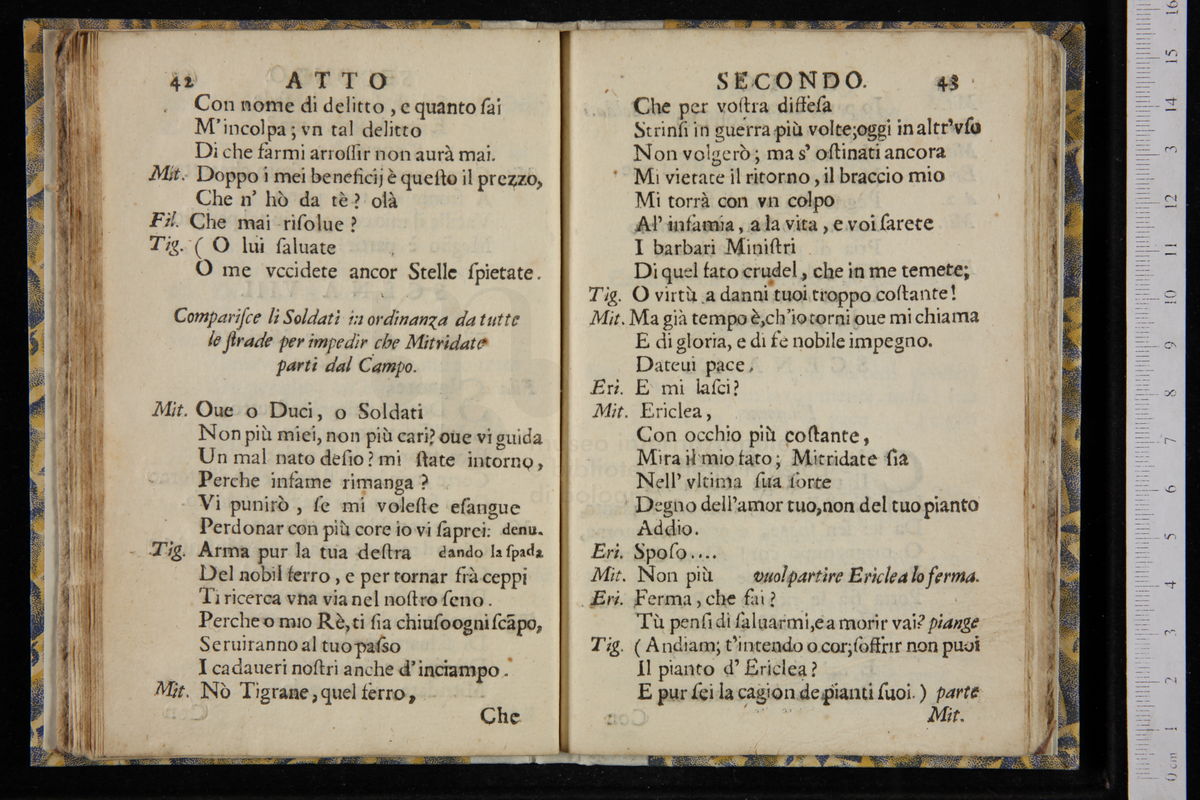 42 ATTO
Con nome di delitto, e quanto ſai
M'incolpa; vn tal delitto
Di che farmi arroſſir non aurà mai.
Mit. Doppo i mei beneficij è queſto il prezzo,
Che n' hò da tè? olà
Fil. Che mai riſolue?
Tig. ( O lui ſaluate
O me vccidete ancor Stelle ſpietate.
Compariſce li Soldati in ordinanza da tutte
le ſtrade per impedir che Mitridate
parti dal Campo.
Mit. Oue o Duci, o Soldati
Non più miei, non più cari? oue vi guida
Un mal nato deſio? mi ſtate intorno,
Perche infame rimanga?
Vi punirò, ſe mi voleſte eſangue
Perdonar con più core io vi ſaprei: denu.
Tig. Arma pur la tua deſtra dando la ſpada
Del nobil ferro, e per tornar frà ceppi
Ti ricerca vna via nel noſtro ſeno.
Perche o mio Rè, ti ſia chiuſo ogni ſcãpo,
Seruiranno al tuo paſso
I cadaueri noſtri anche d'inciampo.
Mit. Nò Tigrane, quel ferro,
Che
SECONDO. 43
Che per voſtra diffeſa
Strinſi in guerra più volte; oggi in altr'vſo
Non volgerò; ma s' oſtinati ancora
Mi vietate il ritorno, il braccio mio
Mi torrà con vn colpo
Al' infamia, a la vita, e voi ſarete
I barbari Miniſtri
Di quel fato crudel, che in me temete;
Tig. O virtù a danni tuoi troppo coſtante!
Mit. Ma già tempo è, ch'io torni oue mi chiama
E di gloria, e di fe nobile impegno.
Dateui pace.
Eri. E mi laſci?
Mit. Ericlea,
Con occhio più coſtante,
Mira il mio fato; Mitridate ſia
Nell' vltima ſua ſorte
Degno dell'amor tuo, non del tuo pianto
Addio.
Eri. Spoſo....
Mit. Non più vuol partire Ericlea lo ferma.
Eri. Ferma, che fai?
Tù penſi di ſaluarmi, e a morir vai? piange
Tig. ( Andiam; t'intendo o cor; ſoffrir non puoi
Il pianto d' Ericlea?
E pur ſei la cagion de pianti ſuoi. ) parte
Mit.